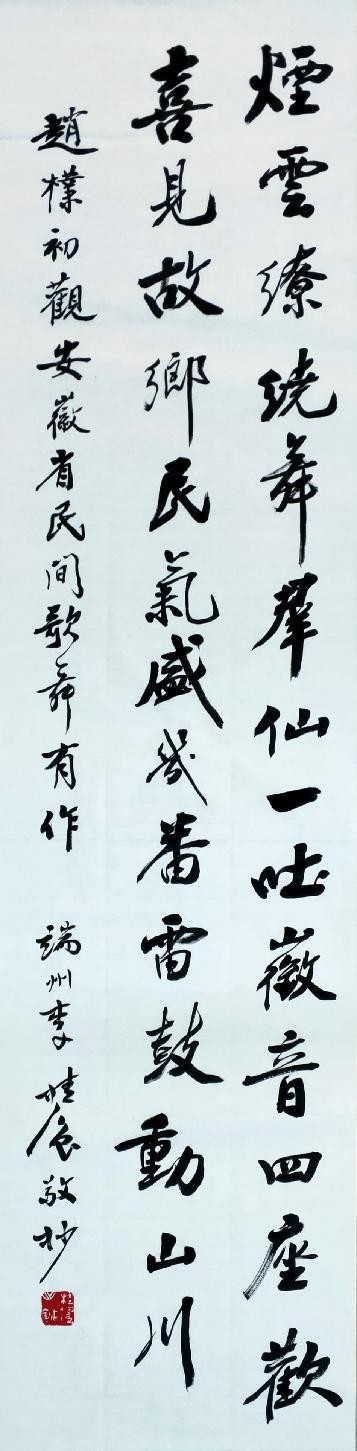 煙雲繚繞舞羣仙一吐徽音四座歡
喜見故鄉民氣盛幾番雷鼓動山川
趙樸初觀安徽省民間歌舞有作 端州李 敬抄